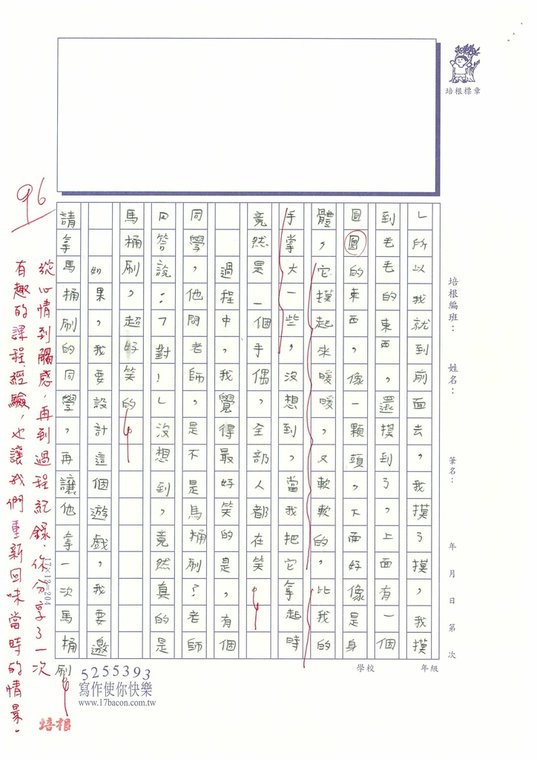 培根標章
培根編班：　姓名：　筆名：　年　月　日　第　次
」所以我就到前面去，我摸了摸，我摸
到毛毛的東西，還摸到了，上面有一個
圓圓的東西，像一顆頭，下面好像是身
體，它摸起來暖暖，又軟軟的，比我的
手掌大一些，沒想到，當我把它拿起時
竟然是一個手偶，全部人都在笑。
過程中，我覺得最好笑的是，有個
同學，他問老師，是不是馬桶刷？老師
回答說：「對！」沒想到，竟然真的是
馬桶刷，超好笑的。
如果，我要設計這個遊戲，我要邀
請拿馬桶刷的同學，再讓他拿一次馬桶刷
96
從心情到觸感，再到過程紀錄，你分享了一次
有趣的課程經驗，也讓我們重新回味當時的情景。
培根
5255393
寫作使你快樂
www.17bacon.com.tw
學校　年級